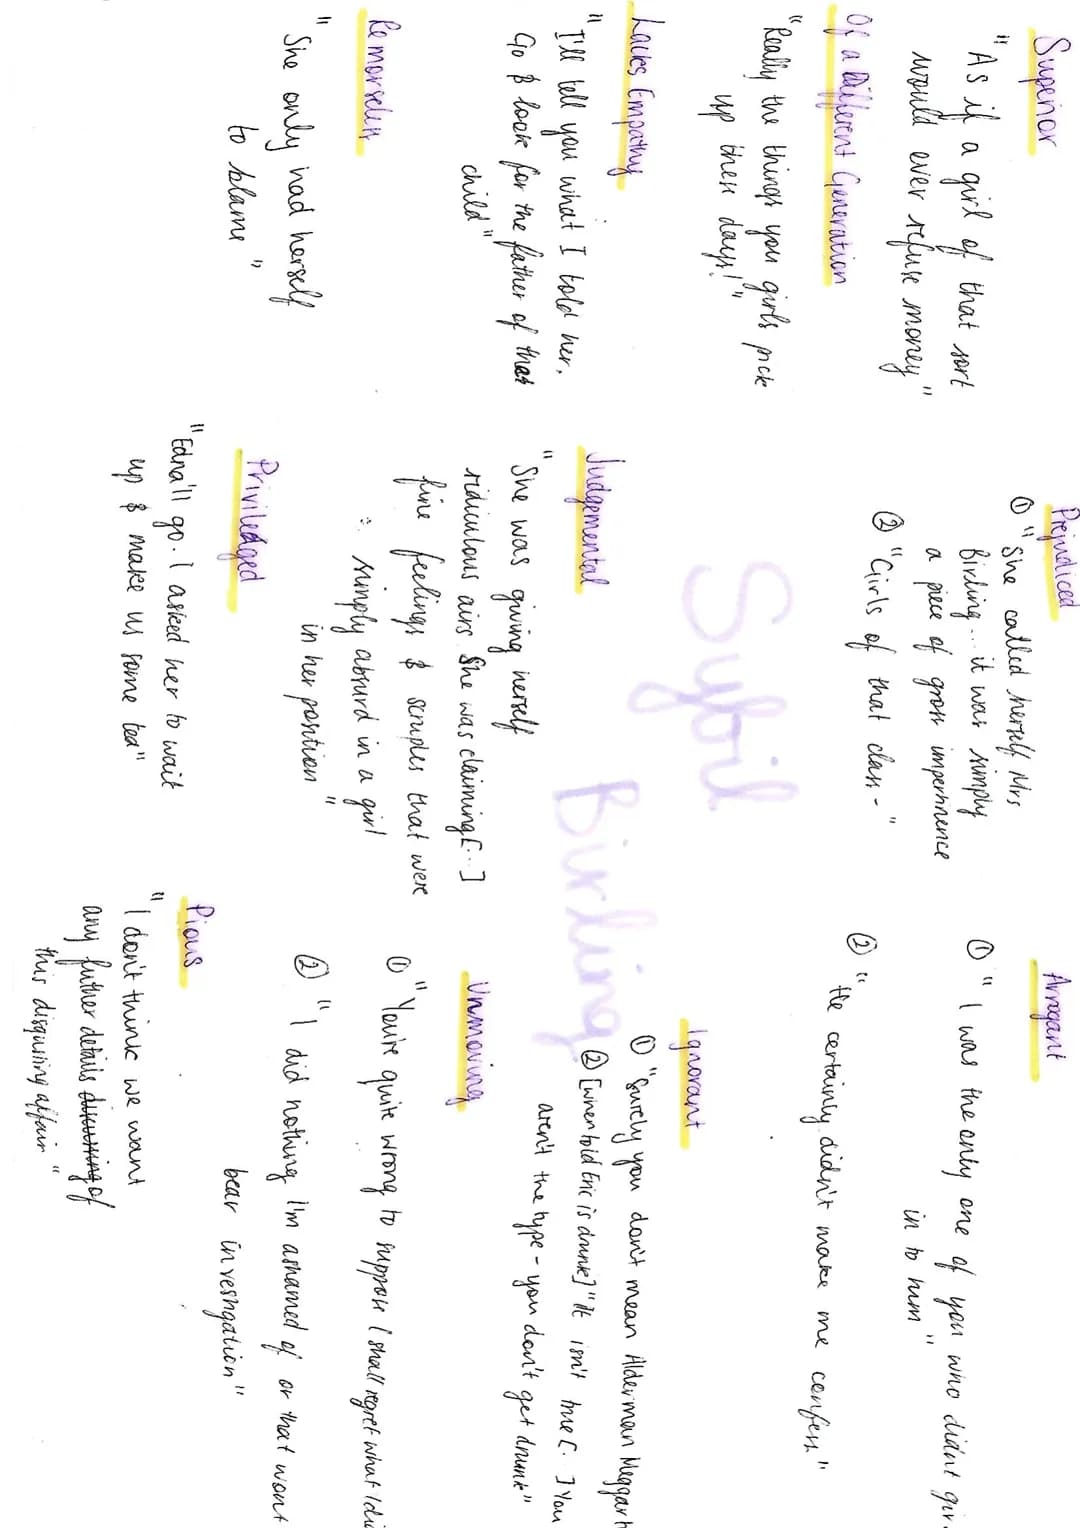 Superior
"As if a girl of that sort
would ever refuse money"
Of a Different Generation
"Really the things you girls pick
up these days!"
Lacks Empathy
"I'll tell you what I told her.
Go & look for the father of that
child"
Remorseless
"She only had herself
to blame"
Prejudiced
① "She called herself Mrs
Birling... it was simply
a piece of gross impertinence
② "Girls of that class-"
Sybil
Birling
Judgemental
"She was giving herself
ridiculous airs. She was claiming [...]
fine feelings & scruples that were
simply absurd in a girl
in her position"
Priviledged
"Edna'll go. I asked her to wait
up & make us some tea"
Arrogant
① "I was the only one of you who didn't giv
in to him"
② "He certainly didn't make me confess"
Ignorant
① "Surely you don't mean Alderman Meggarh
② [when told Eric is drunk] "It isn't true [..] You
aren't the type - you don't get drunk"
Unmoving
① "You're quite wrong to suppose I shall regret what I di
② "I did nothing I'm ashamed of or that wont
bear investigation"
Pious
"I don't think we want
any futher details discussing of
this disgusting affair"